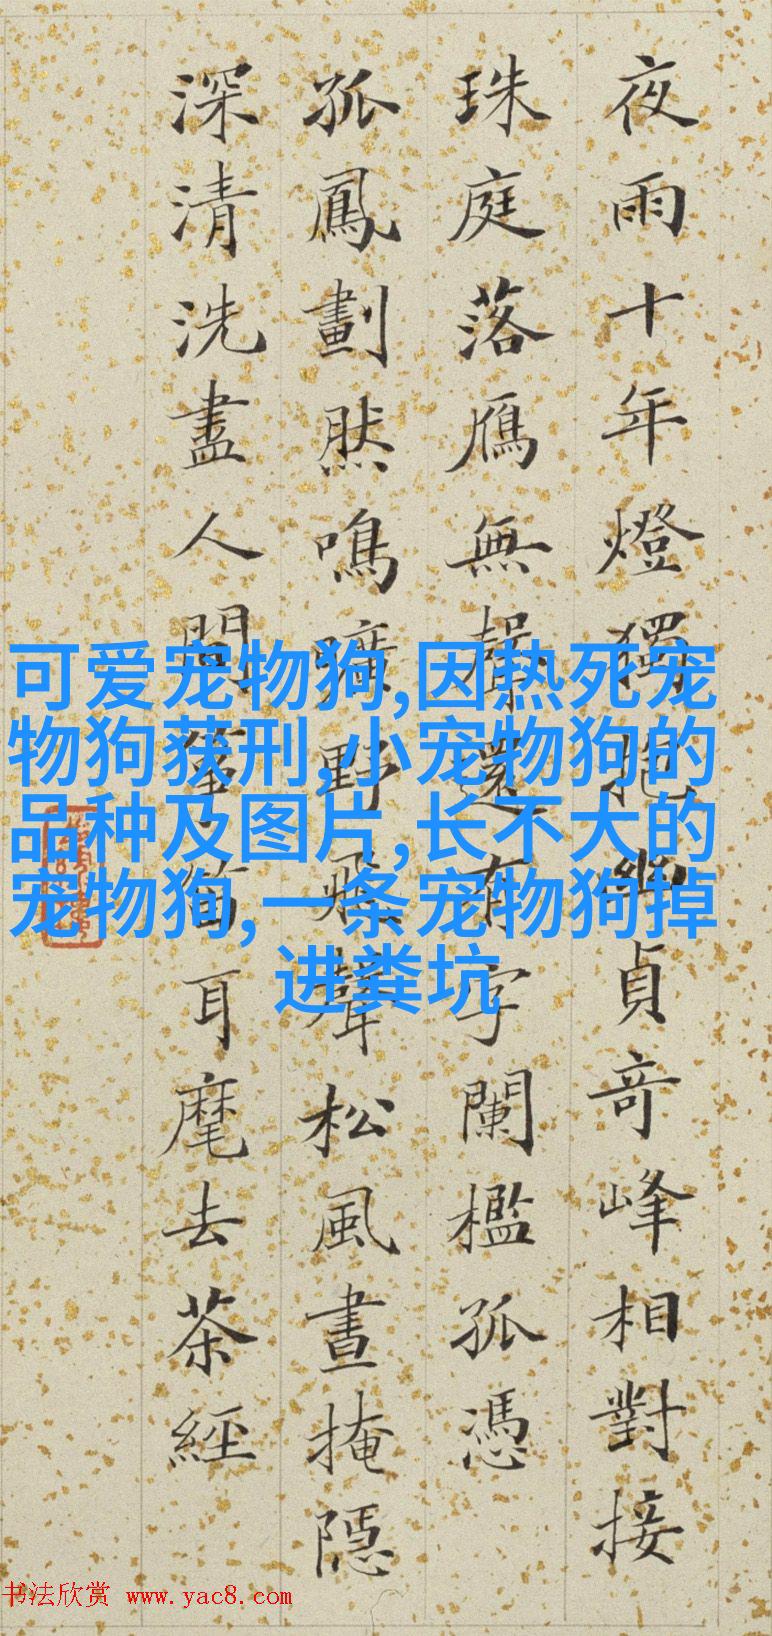 夜雨十年燈獨抱幽貞奇峰相對接
珠庭落鴈無聲還有字闌檻孤憑
孤鳳劃然鳴曠野飛聲松風晝掩隱
深清洗盡人間箏笛耳麾去茶經
可爱宠物狗,因热死宠
物狗获刑,小宠物狗的
品种及图片,长不大的
宠物狗,一条宠物狗掉
进粪坑
书法欣赏 www.yac8.com